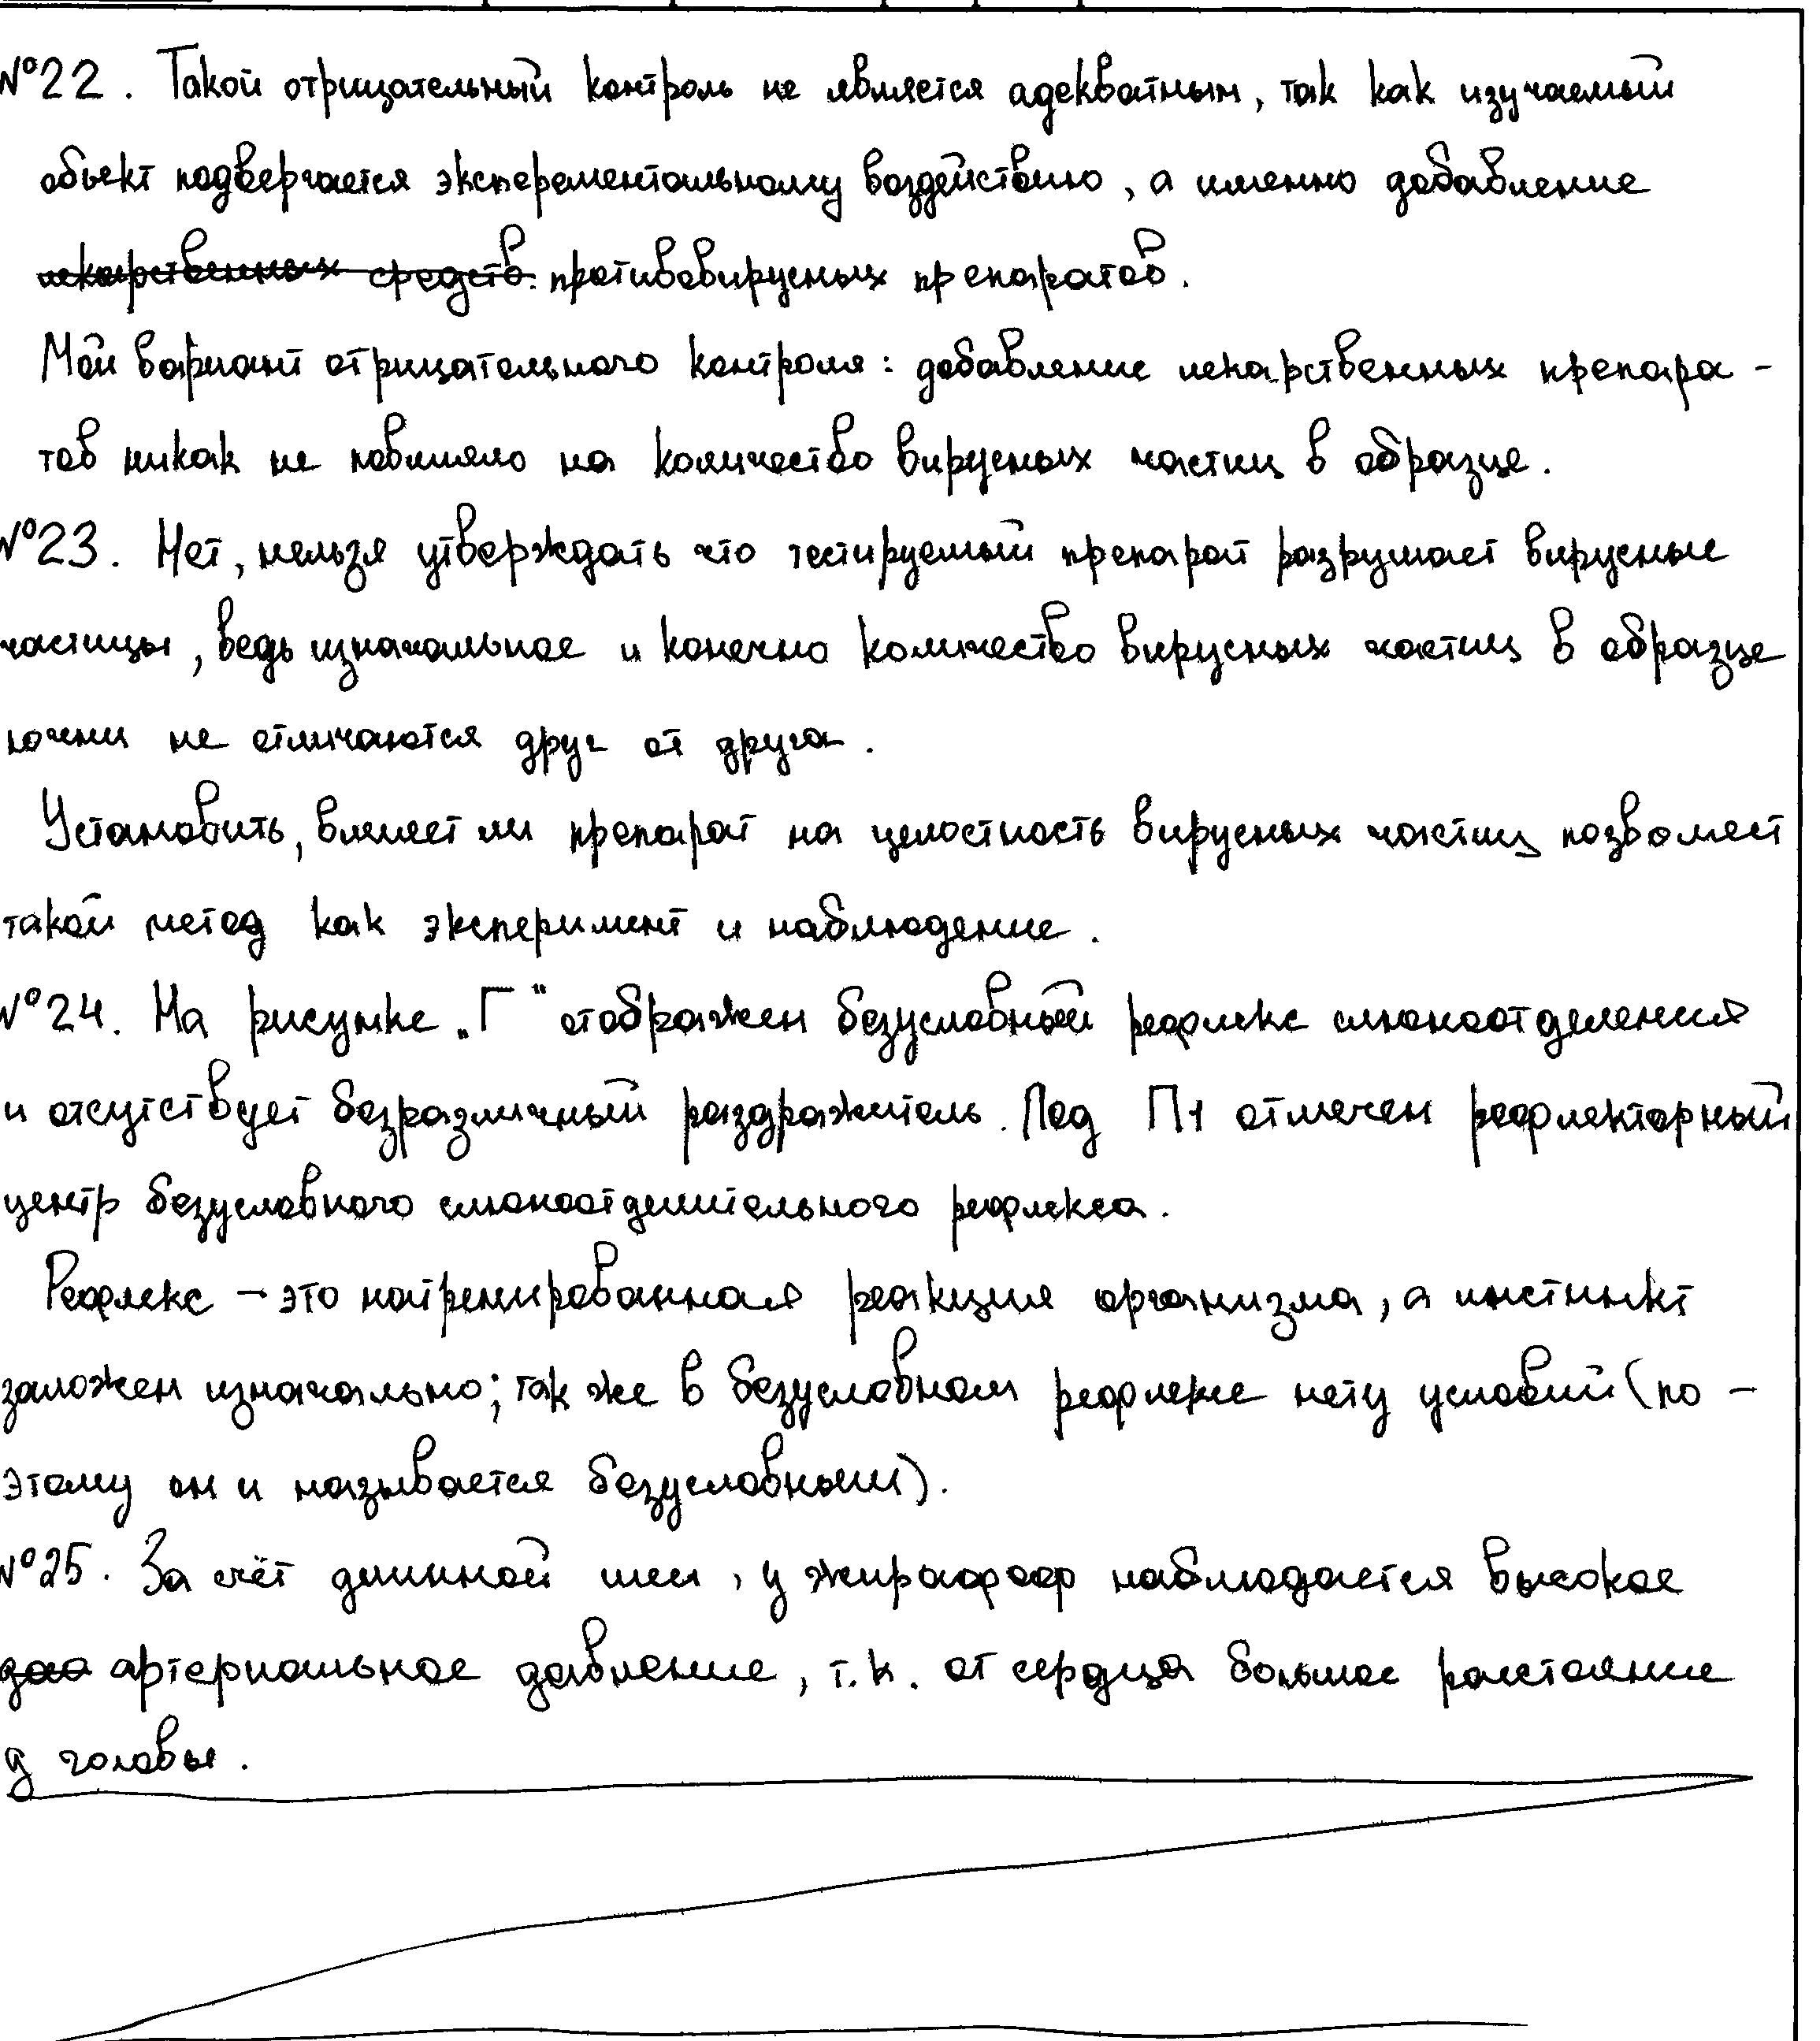 №22. Такой отрицательный контроль не является адекватным, так как изучаемый
объект подвергается эксперементальному воздействию, а именно добавление
лекарственных средств. противовирусных препаратов.
Мой вариант отрицательного контроля: добавление лекарственных препара-
тов никак не повлияло на количество вирусных частиц в образце.
№23. Нет, нельзя утверждать что тестируемый препарат разрушает вирусные
частицы, ведь изначальное и конечно количество вирусных частиц в образце
почти не отличаются друг от друга.
Установить, влияет ли препарат на целостность вирусных частиц позволяет
такой метод как эксперимент и наблюдение.
№24. На рисунке „Г“ отображен безусловный рефлекс слюноотделения
и отсутствует безразличный раздражитель. Под П1 отмечен рефлекторный
центр безусловного слюноотделительного рефлекса.
Рефлекс – это натренированная реакция организма, а инстинкт
заложен изначально; так же в безусловном рефлексе нету условий (по-
этому он и называется безусловным).
№25. За счёт длинной шеи, у жирафов наблюдается высокое
дао артериальное давление, т.к. от сердца большое расстояние
д головы.